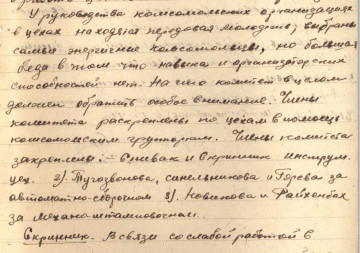 У руководства комсомольских организаций
в цехах находится передовая молодежь; выбраны
самые энергичные комсомольцы, но большая
беда в том что навыка и организаторских
способностей нет. На что комитет в целом
должен обратить особое внимание. Члены
комитета раскреплены по цехам в помощь
комсомольским группоргам. Члены комитета
закреплены: и Скринник инструм.
цех. 2/. Тугозвонова, Синельникова и за
автоматно-сборочном 3/. Новикова и Райхонбах
за механо-штамповочным.
Скринник. В связи со слабой работой в